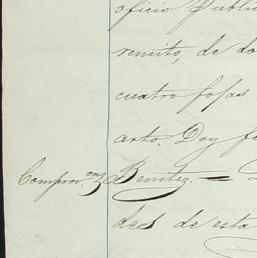 oficio Public
remito, de do
cuatro fojas
arto. Doy fe
Benitez.=
des de esta